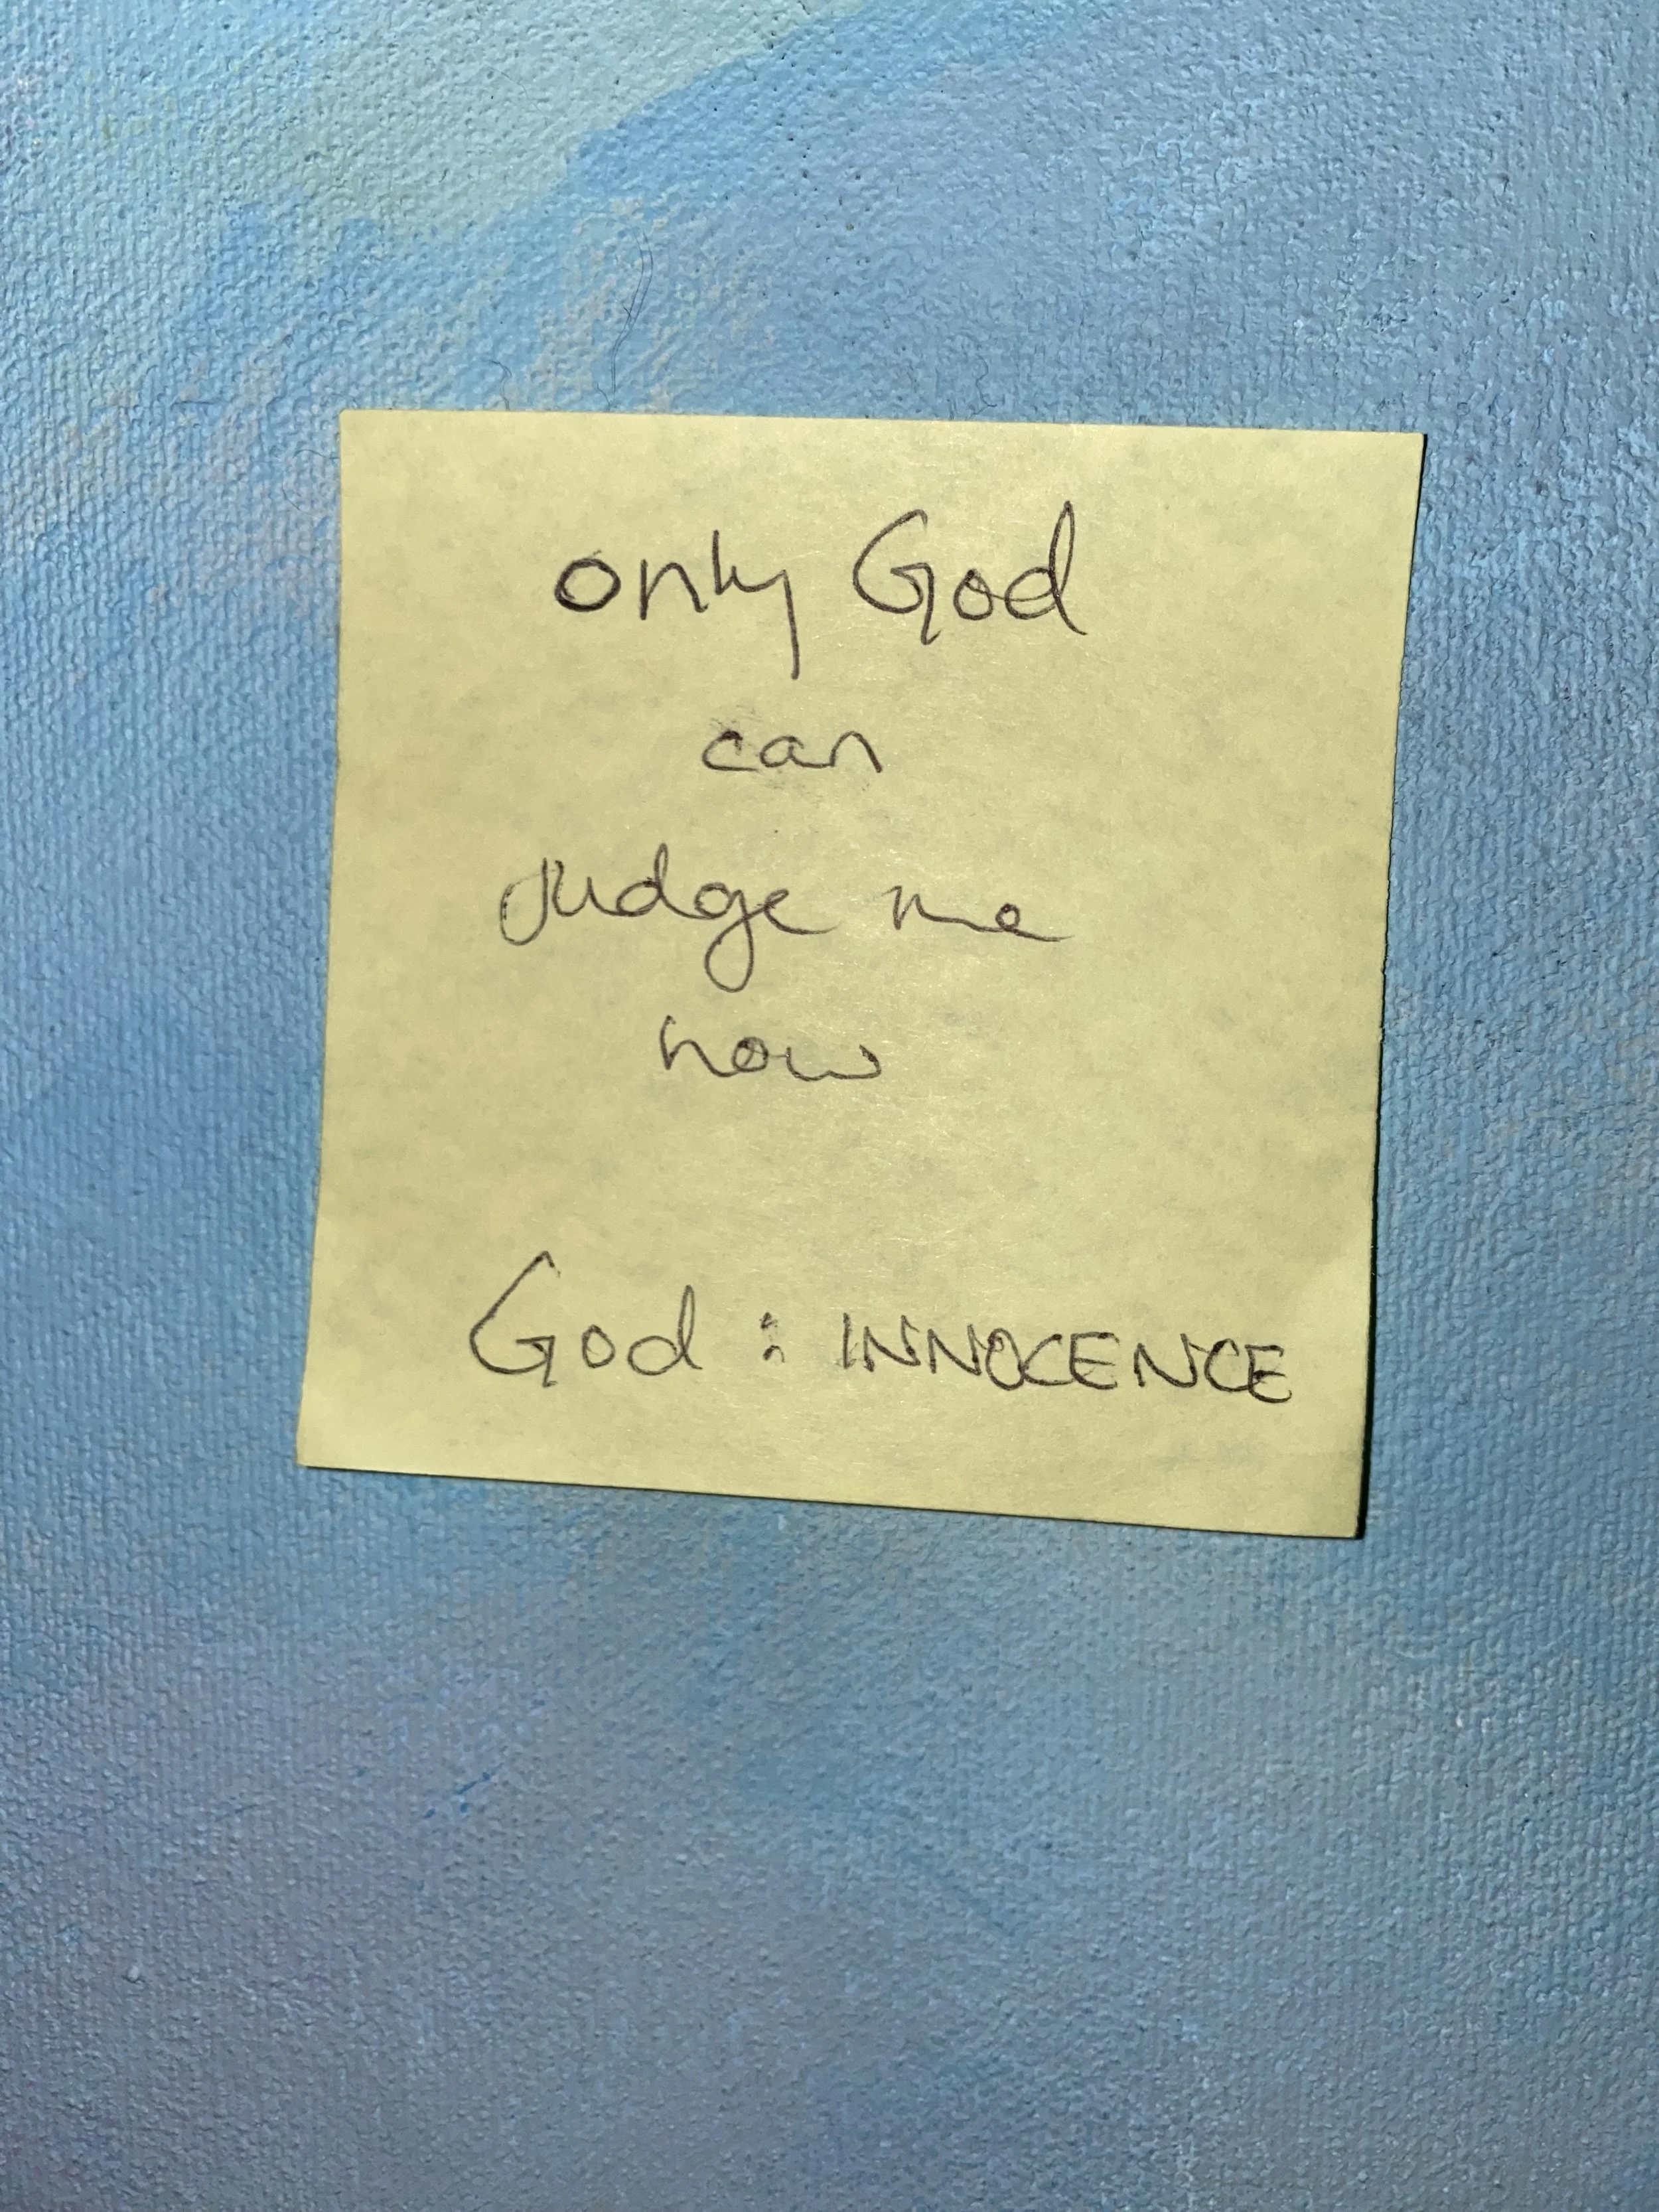 only God
can
Judge me
now
God : INNOCENCE